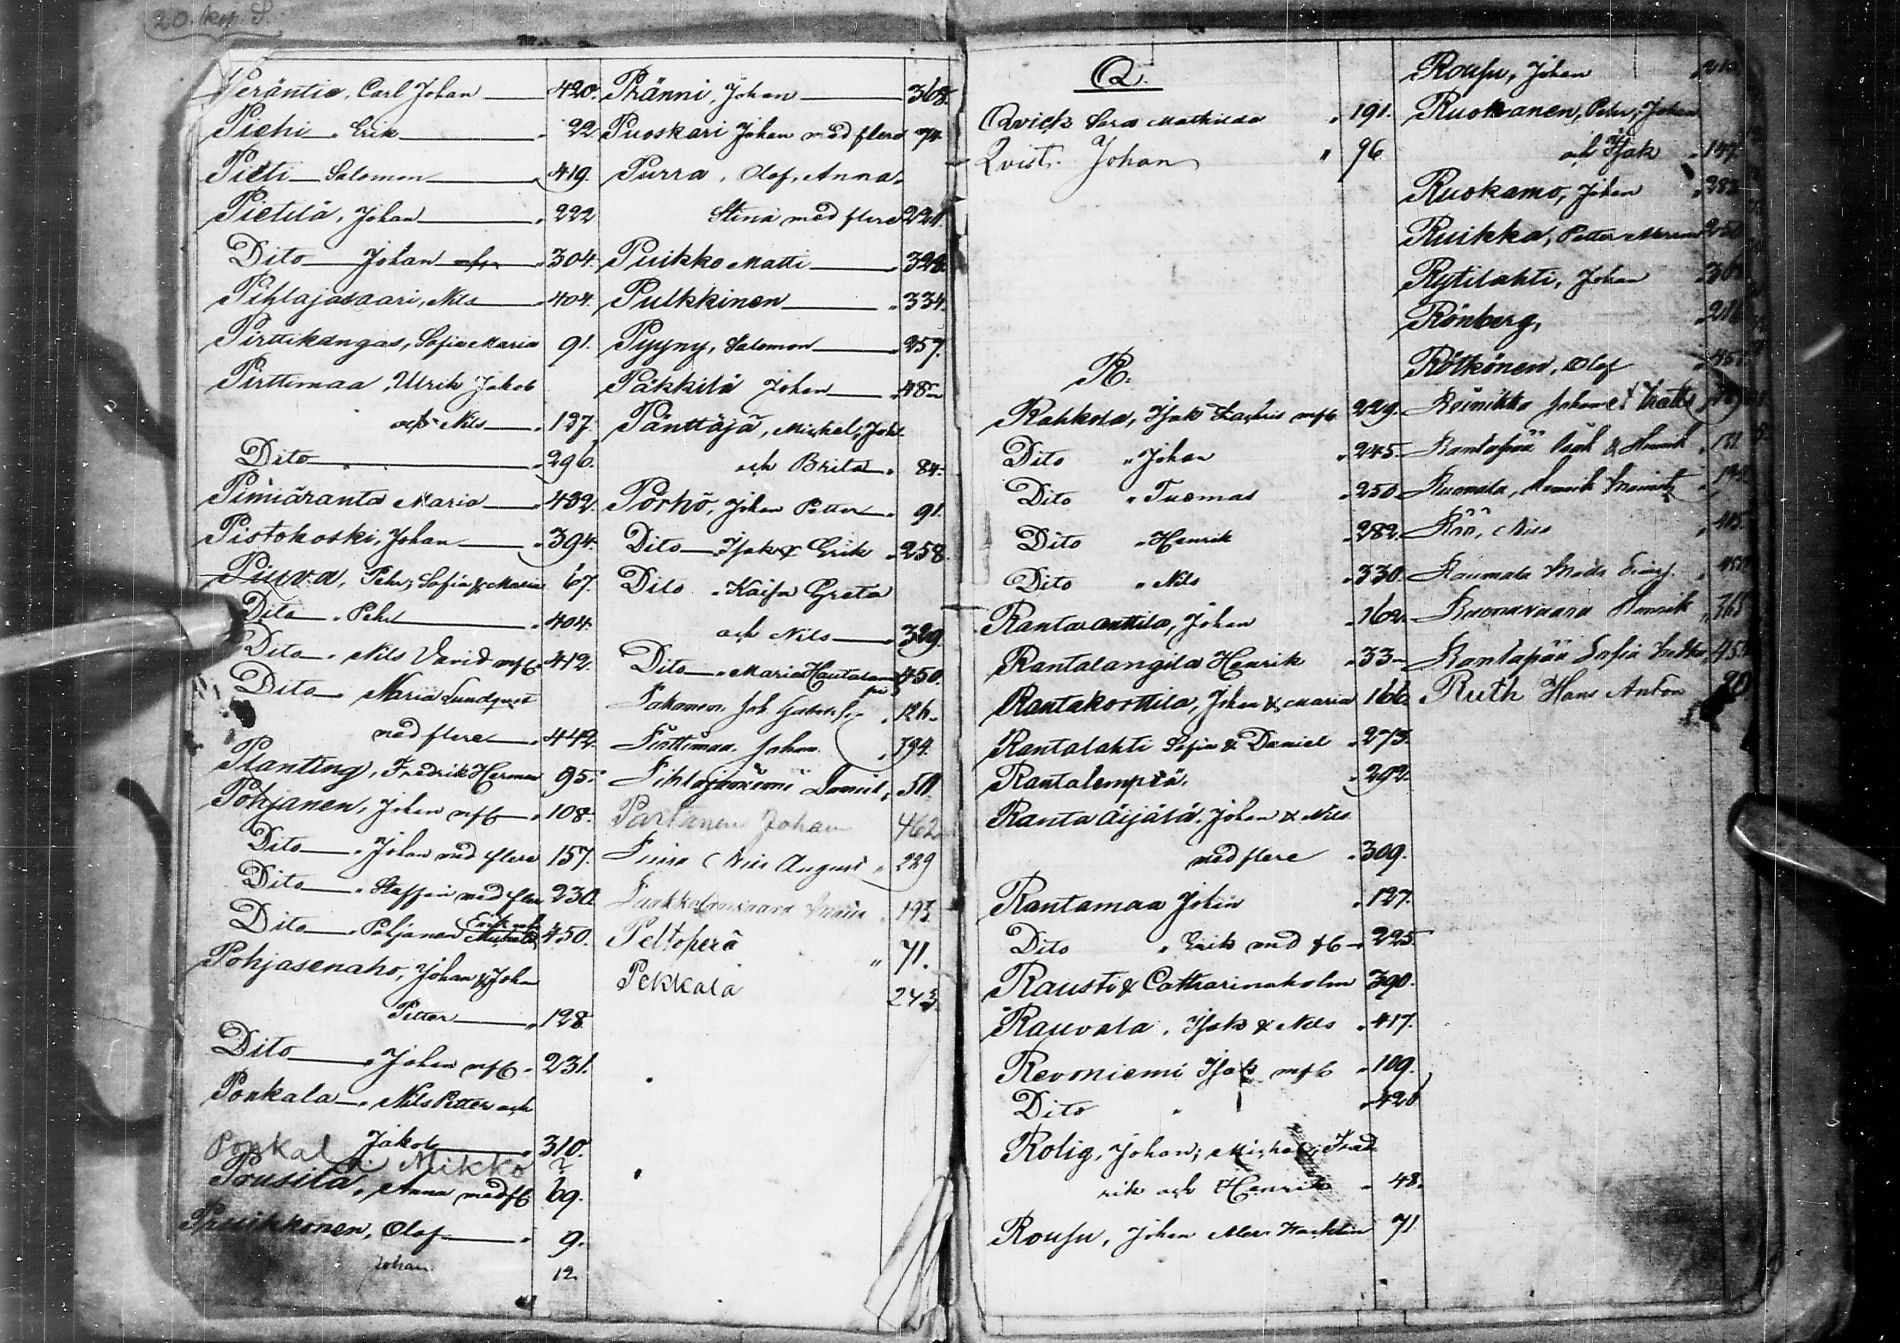 20. kp. S.
Peräntie, Carl Johan 420.
Piehi, Erik 22
Pieti Salomon 419.
Pietilä, Johan 222
Dito Johan 304.
Pihlajasaari, Nils 404.
Pirttikangas, Sofia Maria 91.
Pirttimaa, Ulrik Jakob
och Nils 137.
Dito 296.
Pimiäranta Maria 432.
Pistokoski, Johan 394.
Piuva, Pehr, Sofia & Maria 67.
Dito Pehr 404.
Dito Nils David mfl 412.
Dito Maria Sundqvist
med flere 442
Planting, Fredrik Herman 95.
Pohjanen, Johan mfl 108.
Dito Johan med flere 157.
Dito Staffan med flere 230.
Dito Pohjanen Erik och Michel 450.
Pohjasenaho, Johan & Johan
Petter 128
Dito Johan mfl 231.
Ponkala Nils Petter och
Jakob 310.
Ponkala Mikko ?
Prusila, Anna med fl 69.
Pruikkonen, Olof 9.
Johan 12.
Pränni, Johan 368.
Puoskari Johan med flere 74
Purra, Olof, Anna
Stina med flere 221.
Puikko Matti 328.
Pulkkinen 334.
Pyyny, Salomon 257.
Päkkilä Johan 48
Pänttäjä, Michel, Joh.
och Brita 84.
Pörhö, Johan Petter 91.
Dito Isak & Erik 258.
Dito Kaisa Greta
och Nils 329.
Dito Maria Hautala 450.
126.
Johan 394.
Daniel 50.
Partanen Johan 462
Nils August 229
193
Peltoperä 71.
Pekkala 243.
Q.
Qvick Sara Mathilda 191.
Qvist. Johan 96
R.
Rahkola, Isak Zachris mfl 229.
Dito Johan 245.
Dito Tuomas 250
Dito Henrik 282.
Dito Nils 330.
Rantaanttila, Johan 162.
Rantalangila Henrik 33
Rantakorttila, Johan & Maria 166.
Rantalahti Sofia & Daniel 273.
Rantalempiä, 292.
Ranta äijälä, Johan & Nils
med flere 309.
Rantamaa Johan 127.
Dito Erik med fl 225.
Rausti & Catharinaholm 390.
Rauvala, Isak & Nils 417.
Revoniemi Isak mfl 109.
Dito 420
Rolig, Johan, Michel, Fred
rik och Henrik 48.
Rousu, Johan Alex. 71
Rousu, Johan
Ruokanen, Pehr, Johan
och Isak 147.
Ruokamo, Johan
Ruikka, Petter 250
Rytilahti, Johan
Rönberg,
Rötkönen, Olof
Reinikka Johan
Rantapää Isak & Henrik
Ruonala, Henrik
Rää, Nils 415.
Raumala
Ruonavaara Henrik
Rantapää Sofia
Ruth Hans Anton